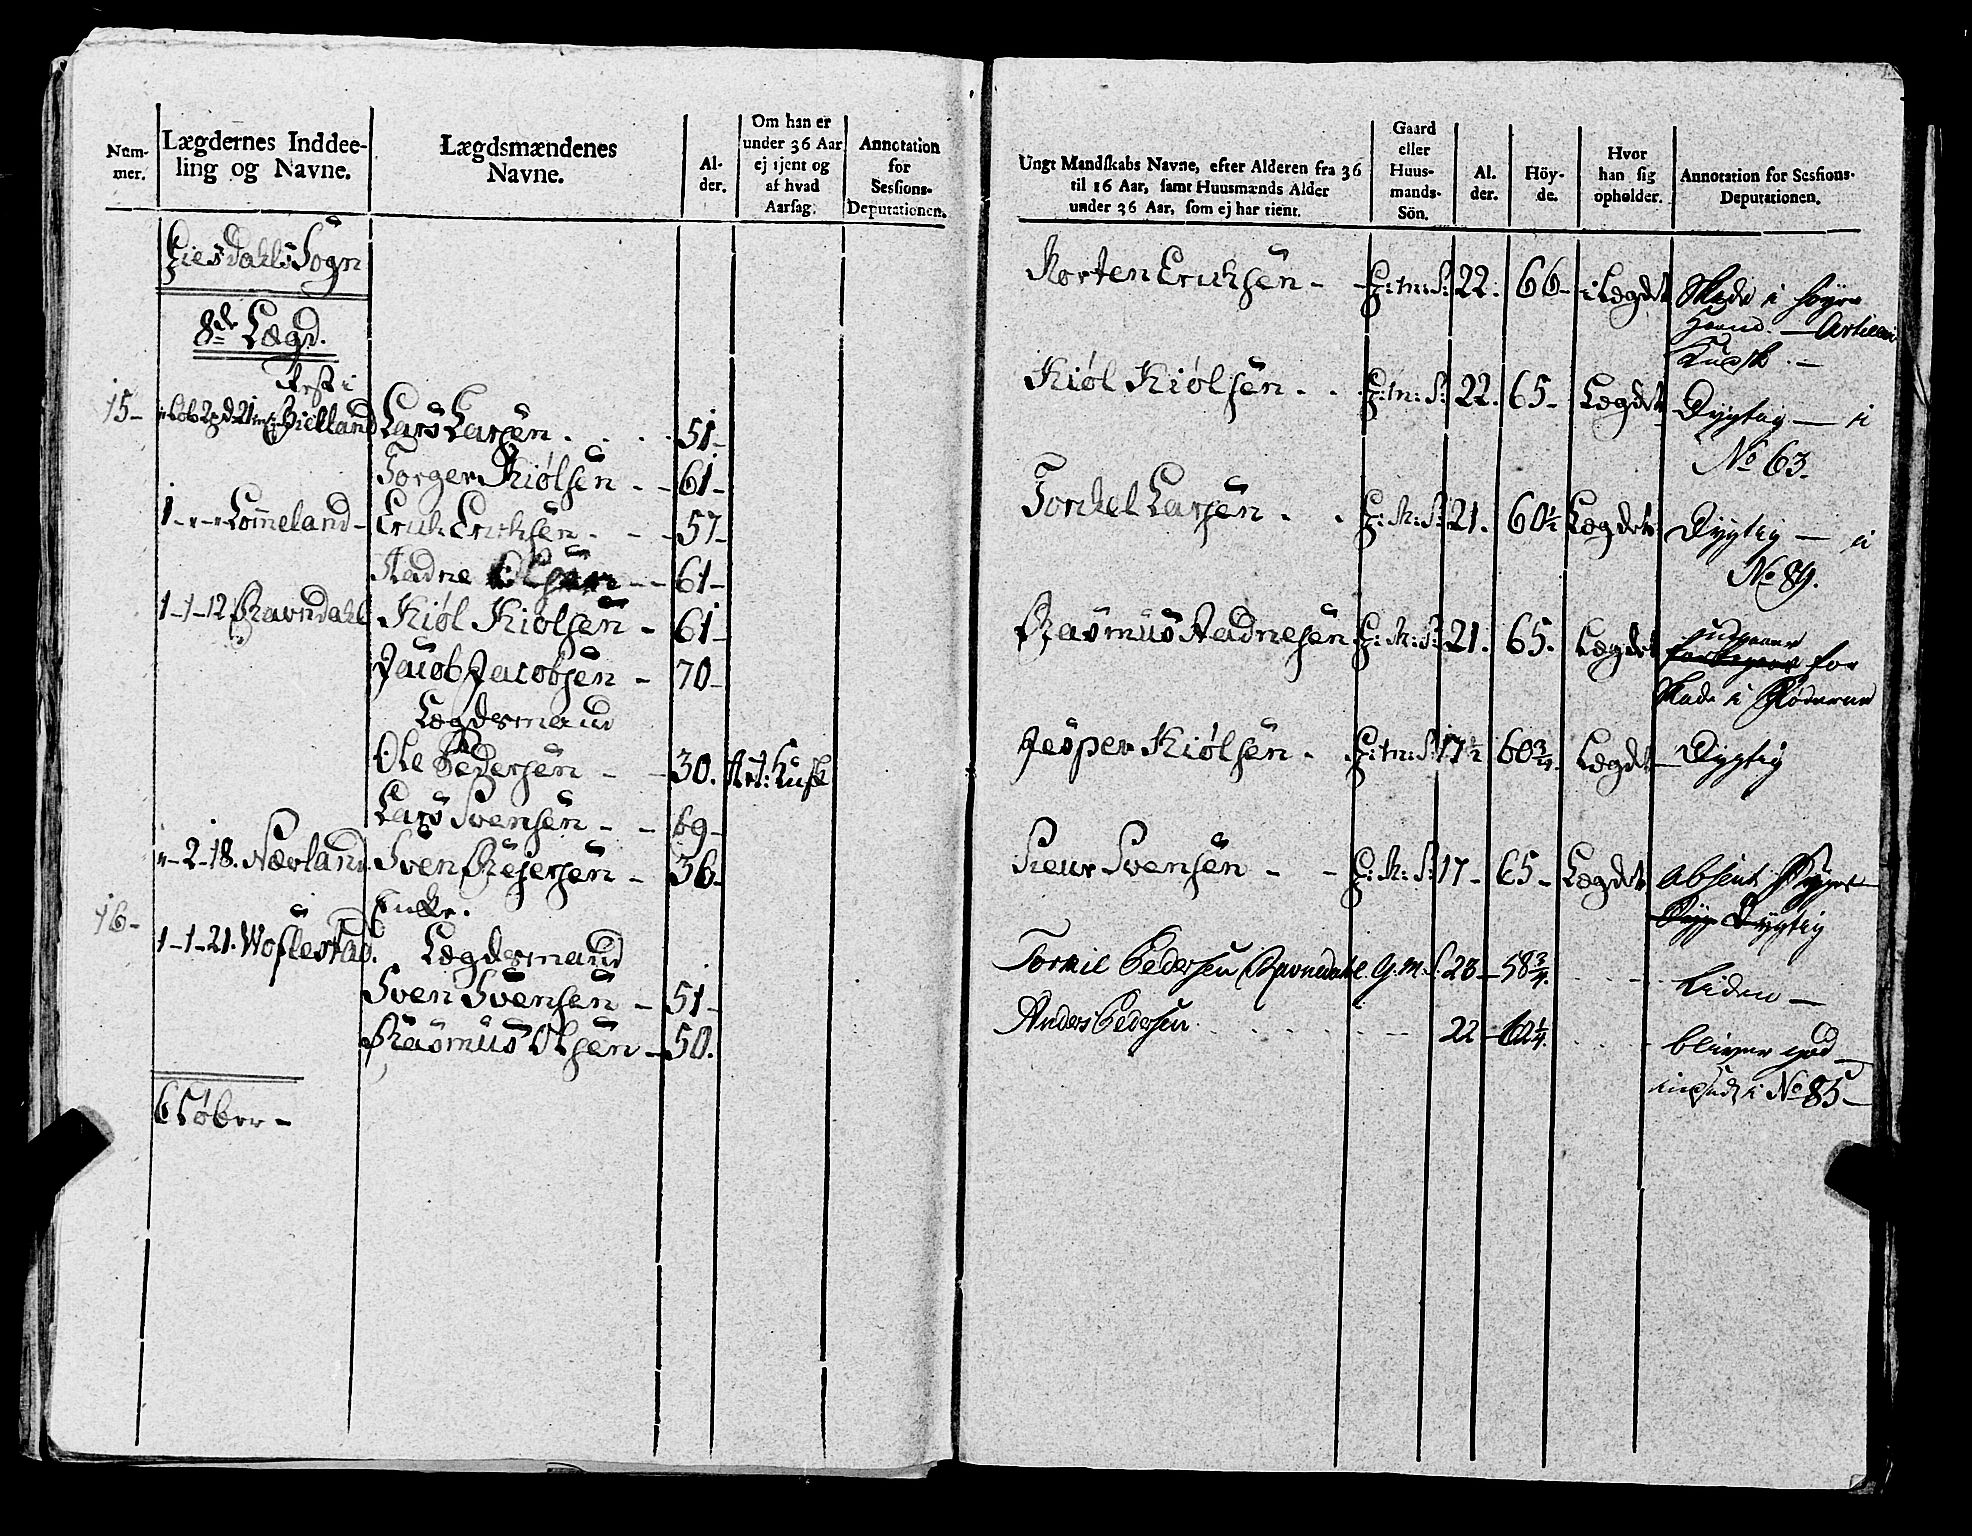 Nummer.
Lægdernes Inddeeling og Navne.
Lægdsmændenes Navne.
Alder.
Om han er under 36 Aar ej tjent og af hvad Aarsag.
Annotation for Sessions-Deputationen.
Giesdahls Sogn
8de Lægd.
Rest i
15- Gielland Lars Larsen 51-
Torger Kiølsen - - 61-
1 - " - " Lommeland - Erich Erichsen - - 57-
Aadne Olsen - - 61-
1-1-12 Ravndahl Kiøl Kiølsen - 61-
Jacob Jacobsen - 70-
Lægdsmand
Ole Pedersen - - 30. Art: Kusk
Lars Svensen - - 69-
"-2-18. Nævland. Sven Rejersen - 36-
16- Enke.
1-1-21. Woslestad. Lægdsmand
Sven Svensen - 51-
Rasmus Olsen - 50.
6 Røder -
Ungt Mandskabs Navne, efter Alderen fra 36 til 16 Aar, samt Huusmænds Alder under 36 Aar, som ej har tient.
Gaard eller Huusmands-Sön.
Alder.
Höyde.
Hvor han sig opholder.
Annotation for Sessions-Deputationen.
Morten Erichsen - - G:m:S: 22. 66- i Lægdet Skade i høyre
Haand. - Artilleri
Kusk. -
Kiøl Kiølsen - . G:m:S: 22. 65- Lægdet Dygtig - i
No 63.
Torkel Larsen . . G:M:S: 21. 60½ Lægdet Dygtig - i
No 89.
Rasmus Aadnesen G:M:S: 21. 65. Lægdet udgaaer for
Skade i
Jesper Kiølsen . . G:m:S: 17½ 60¾. Lægdet - Dygtig
Svensen - - G:M:S: 17- 65- Lægdet absent
Dygtig
Torkil Pedersen Ravnedahl. G.M.S. 23-58¾. Liden -
Anders Pedersen. 22-62¼. bliver god
i No 85-